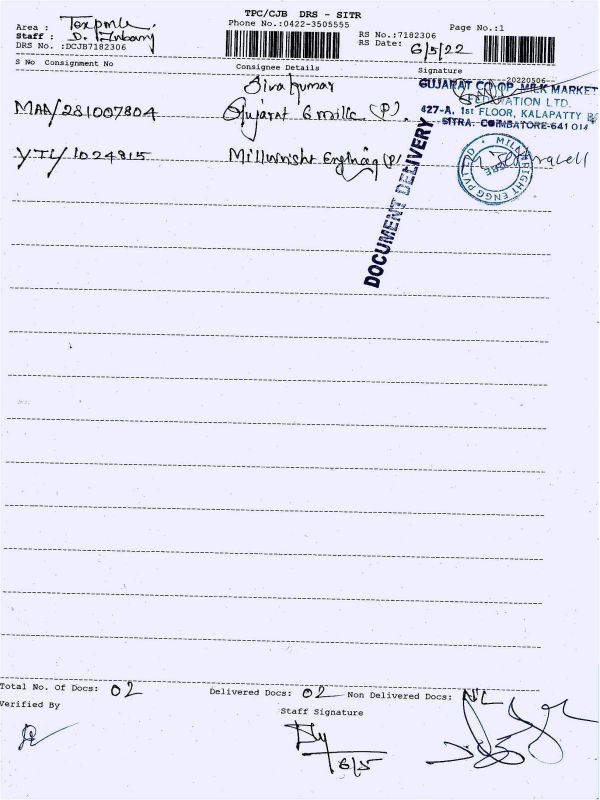 TPC/CJB DRS - SITR
Phone No.:0422-3505555
Area :
Staff : D.
DRS No. :DCJB7182306
RS No.:7182306
RS Date: 6/5/22
Page No.:1
S No Consignment No Consignee Details Signature 20220506
Sivakumar
MAA/281007804 Gujarat (P).
GUJARAT CO.OP. MILK MARKET
FEDERATION LTD.
427-A, 1st FLOOR, KALAPATTY
SITRA. COIMBATORE-641 014
YTL/1024815
MILLWRIGHT ENGG PVT LTD
DOCUMENT DELIVERY
Total No. Of Docs: 02 Delivered Docs: 02 Non Delivered Docs: NIL
Verified By Staff Signature
6/5